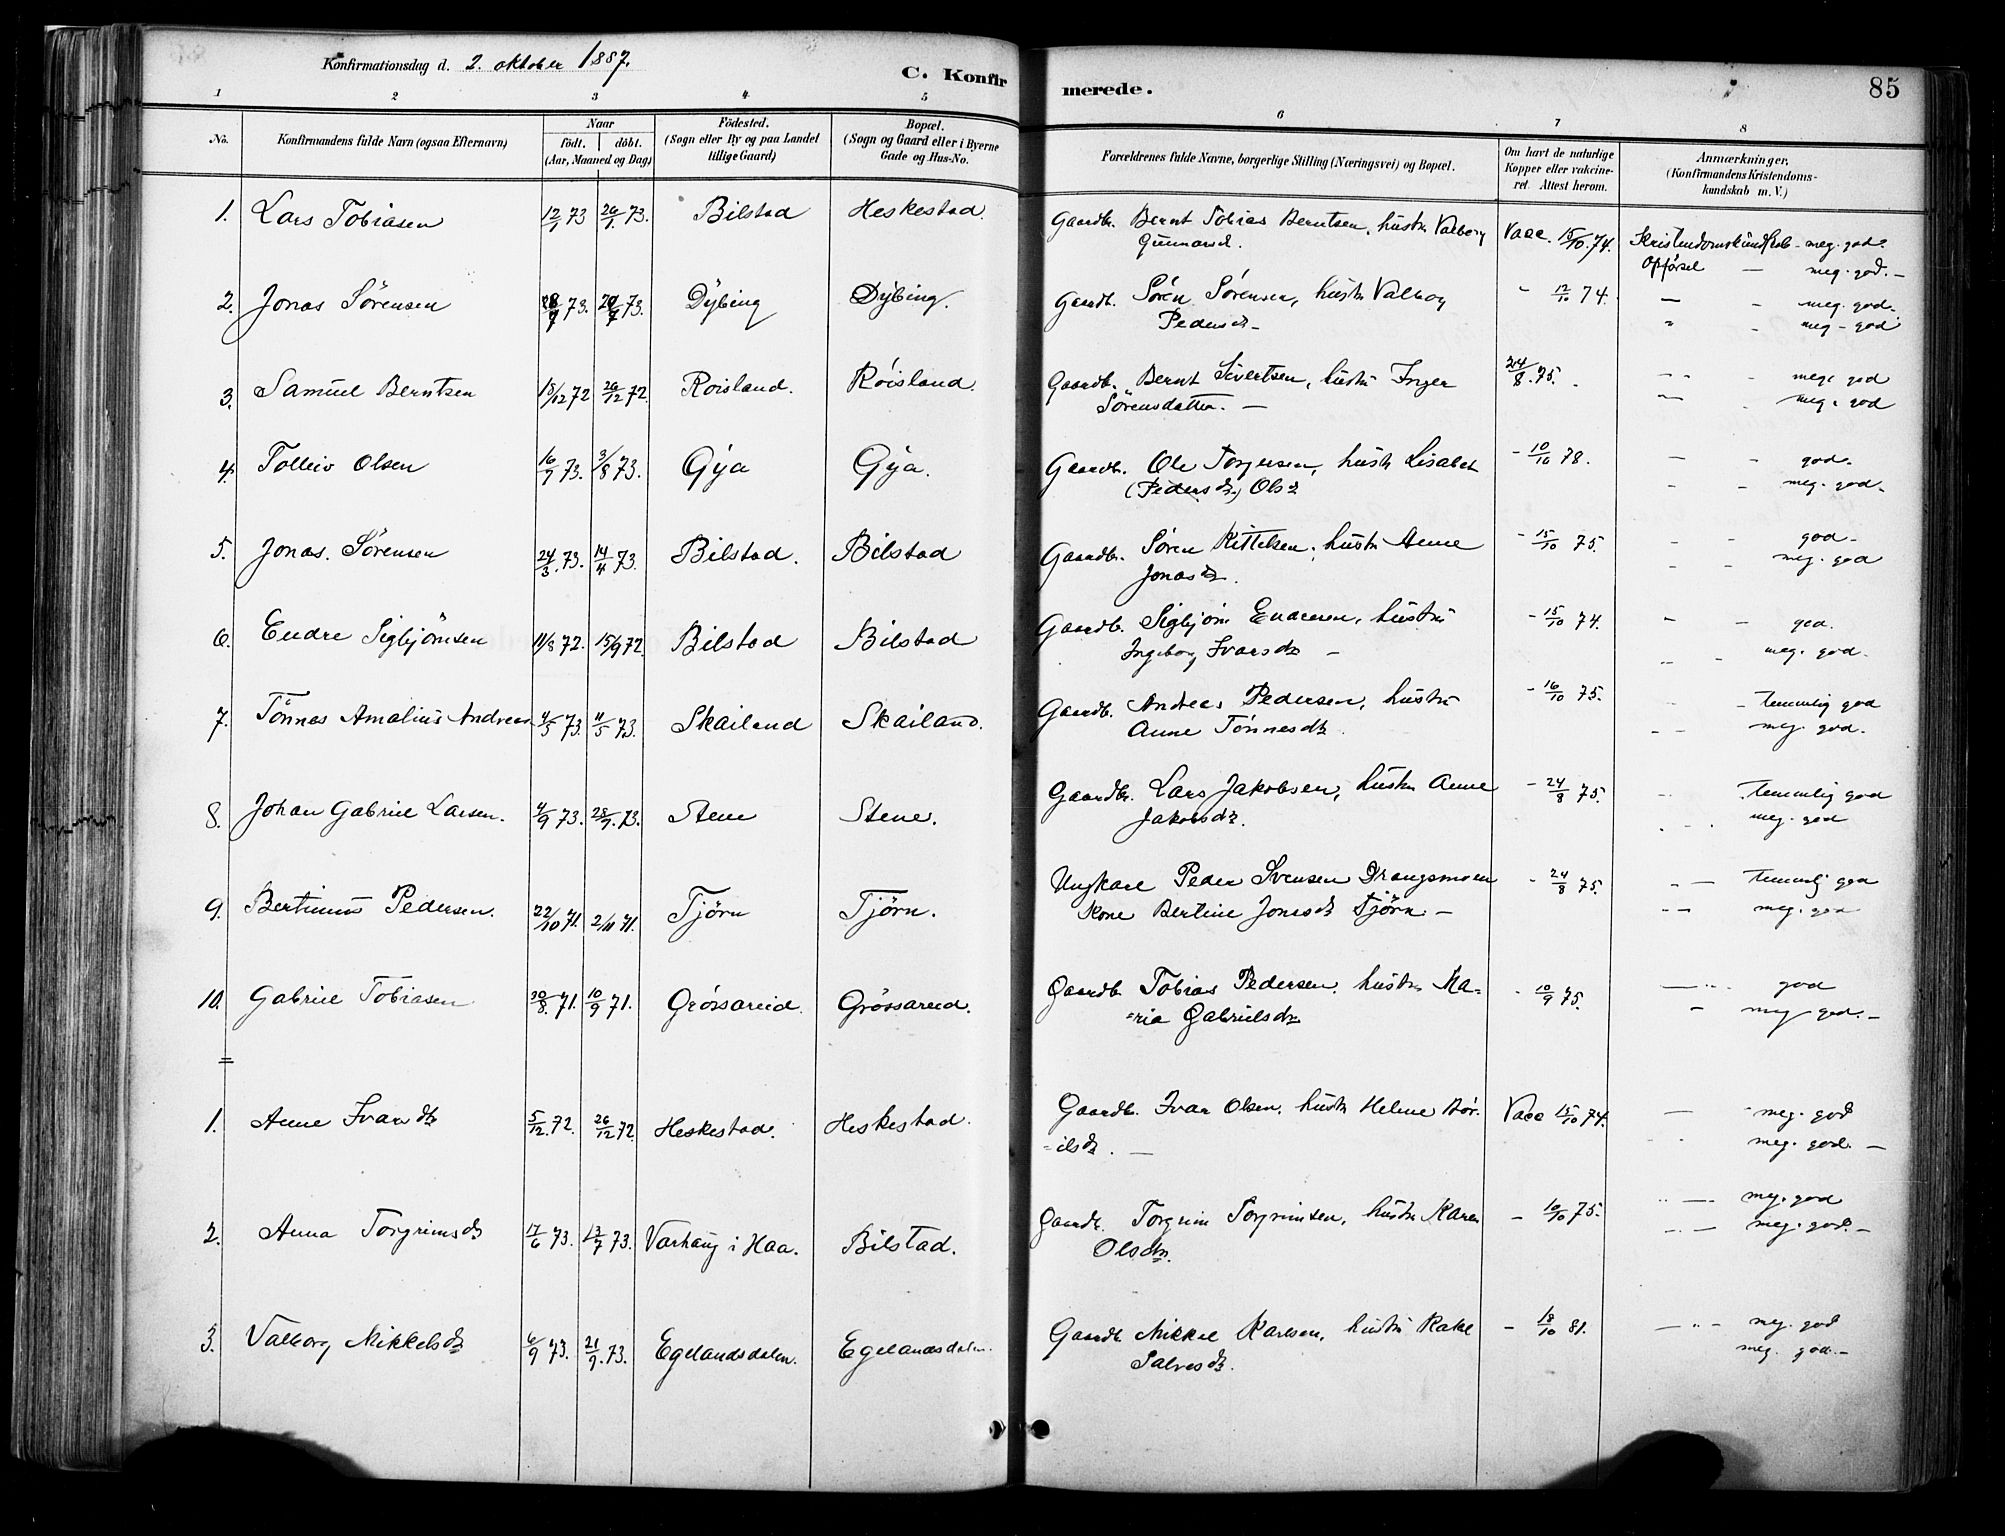 Konfirmationsdag d. 2. oktober 1887.
C. Konfirmerede.
85
1 2 3 4 5 6 7 8
No.
Konfirmandens fulde Navn (ogsaa Efternavn)
Naar
födt. döbt.
(Aar, Maaned og Dag)
Födested.
(Sogn eller By og paa Landet
tillige Gaard)
Bopæl.
(Sogn og Gaard eller i Byerne
Gade og Hus-No.
Forældrenes fulde Navne, borgerlige Stilling (Næringsvei) og Bopæl.
Om havt de naturlige
Kopper eller vakcine-
ret Attest herom.
Anmærkninger,
(Konfirmandens Kristendoms-
kundskab m. V.)
1. Lars Tobiasen 12/1 73 26/1. 73. Bilstad Heskestad. Gaardb. Bernt Tobias Berntsen, hustru Valborg Vacc. 15/10. 74. Kristendomskundskab - meg. god.
Gunnarsd. Opførsel — meg. god. -
2. Jonas Sörensen 73. 73. Dybing Dybing. Gaardb. Sören Sörensen, hustru Valborg - 12/10 74. — - meg. god.
Pedersd - " - meg - god
3. Samuel Berntsen 18/12 72 26/12 72. Roisland. Röisland. Gaardb. Bernt Sivertsen, hustru Inger 24/8. 75. - - - meg. god
Sörensdatter. — — - meg. god
4. Tolleiv Olsen 16/7 73. 3/8 73. Gya Gya. Gaardb. Ole Torgersen, hustr Lisabet - 10/10 78. - - god.
(Pedersdr.) Olsdr - - meg. god.
5. Jonas. Sörensen 24/3. 73. 14/4 73. Bilstad. Bilstad Gaardb. Sören Kittelsen, hustru Anne - 15/10 75. - - god.
Jonasdr. - - meg. god
6. Endre Sigbjörnsen 11/8 72. 15/9 72. Bilstad Bilstad Gaardb. Sigbjörn Endresen, hustru - 15/10 74. - - god.
Ingeborg Ivarsdr - - - meg. god.
7. Tönnas Amalius Andreas 4/5 73. 11/5 73. Skailand Skailand. Gaardb. Andreas Pedersen, hustru - 16/10 75. - temmelig god
Anne Tönnesdr. - - meg. god.
8. Johan Gabriel Larsen. 4/9 73. 28/9. 73. Stene Stene. Gaardbr. Lars Jakobsen, hustru Anne - 24/8 75. - temmelig god
Jakobsdr. - - meg. god
9. Bertinius Pedersen. 22/10 71. 2/11 71. Tjörn Tjörn. Ungkarl Peder Svensen Drangsmoen - 24/8 75. - — temmelig god
Kone Bertine Jonasdr Tjörn. — - - meg. god
10. Gabriel Tobiasen 30/8. 71. 10/9 71. Grössareid. Grössareid. Gaardb. Tobias Pedersen. hustru Ma= - 10/9 75. — god
=ria Gabrielsdr - meg god. -
1. Anne Ivarsdr 5/12. 72. 26/12 72 Heskestad. Heskestad. Gaardb. Ivar Olsen, hustru Helene Bör. Vacc 15/10 74. — - meg. god
-ilsdr. — - - meg. god. -
2. Anna Torgrimsdr 17/6 73. 13/7 73. Varhaug i Haa. Bilstad. Gaardb. Torgrim Torgrimsen, hustru Karen - 10/10 75. - — - meg. god
Olsdr. - — meg. god. -
3. Valborg Mikkelsdr 6/9 73. 21/9. 73. Egelandsdalen. Egelandsdalen. Gaardb. Mikkel Karlsen, hustru Rakel - 18/10 81. — - - meg. god
Salvesdr. meg. god. -